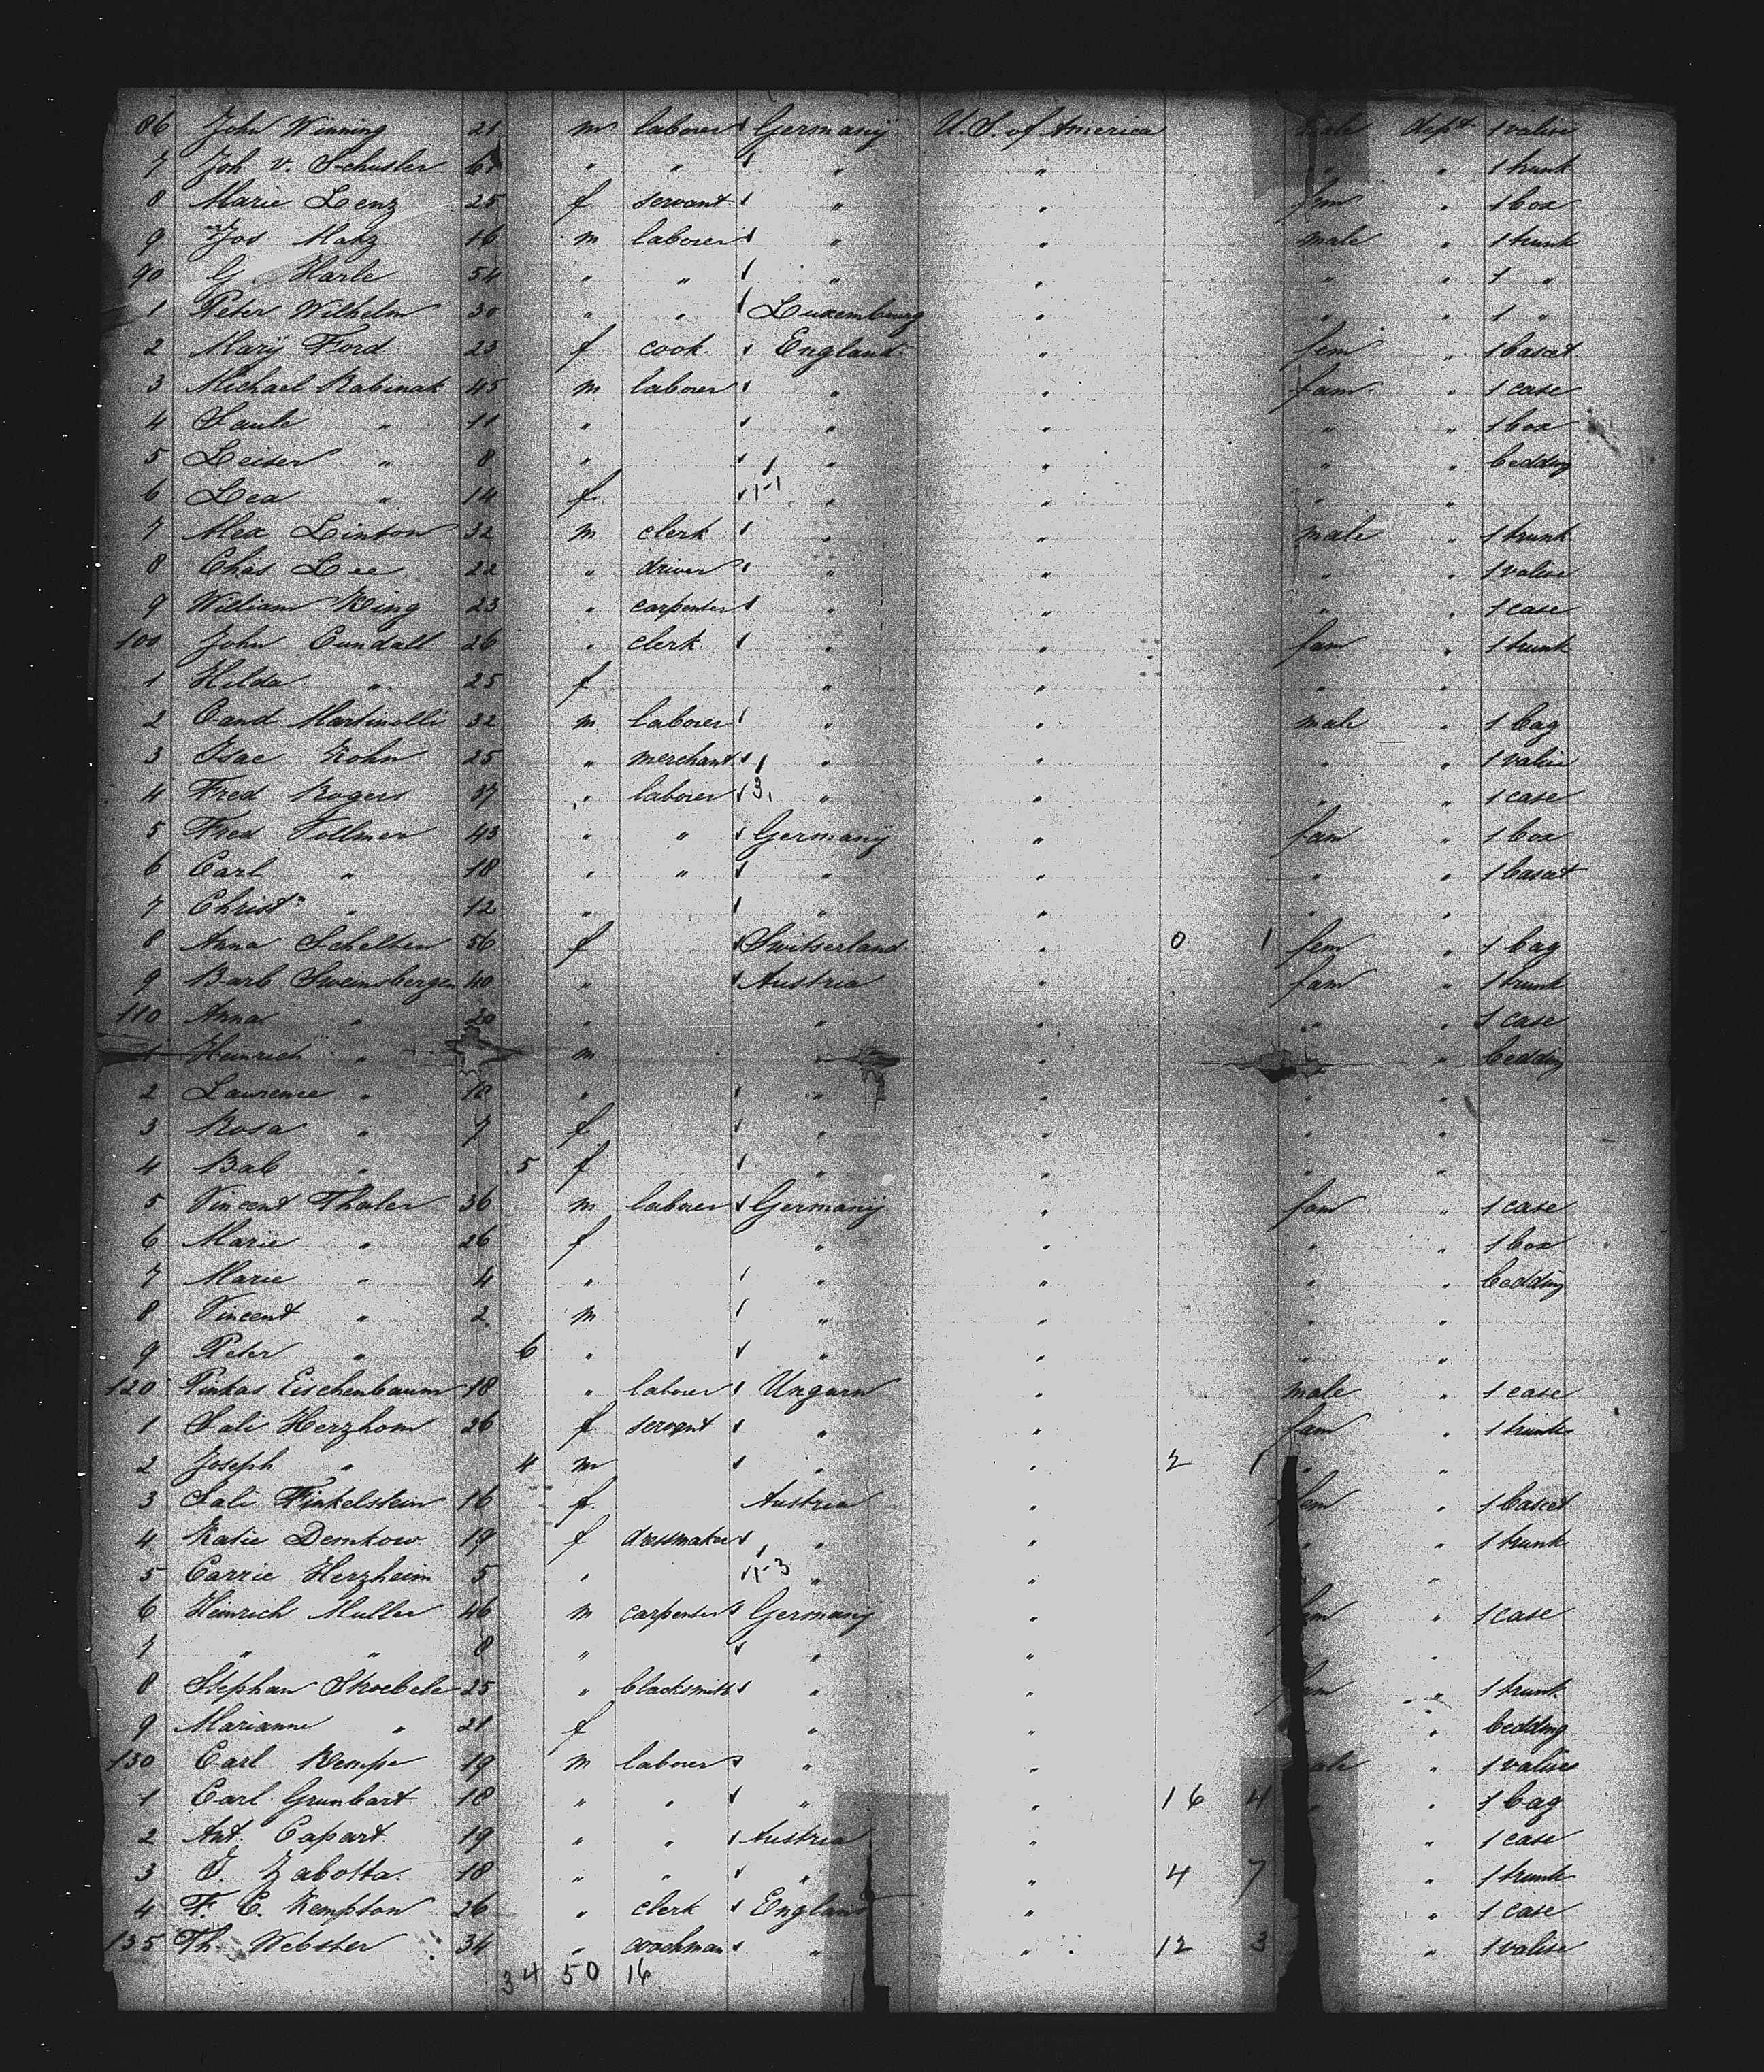 86 John Winning 21 m laborer Germany U. S. of America male dept 1 valise
7 Joh v. Schusler " " " " " " 1 trunk
8 Marie Lenz 25 f servant " " fem " 1 box
9 Jos Matz 16 m laborer " " male " 1 trunk
90 G. Harle 54 " " " " " " 1 "
1 Peter Wilhelm 30 " " Luxembourg " " " 1 "
2 Mary Ford 23 f cook England " fem " 1 bascet
3 Michael Rabinak 45 m laborer " " fam " 1 case
4 Saule " 11 " " " " " 1 box
5 Leiser " 8 " " " " " bedding
6 Lea " 14 f 1-1 " " " "
7 Alex Linton 32 m clerk " " male " 1 trunk
8 Chas Lee 22 " driver " " " " 1 valise
9 William King 23 " carpenter " " " " 1 case
100 John Cundall 26 " clerk " " fam " 1 trunk
1 Hilda " 25 f " " " "
2 Cand Martinolli 32 m laborer " " male " 1 bag
3 Isac Kohn 25 " merchant " " " " 1 valise
4 Fred Rogers 37 " laborer 3 " " " " 1 case
5 Fred Vollmer 43 " " Germany " fam " 1 box
6 Carl " 18 " " " " " " 1 bascet
7 Christ " 12 " " " " "
8 Anna Schelten 56 f Switserland " 0 1 fem " 1 bag
9 Barb Sweinsbergen 40 " Austria " fam " 1 trunk
110 Anna " 20 " " " " " 1 case
1 Heinrich " m " " bedding
2 Laurence " " " " " "
3 Rosa " 7 f " " " "
4 Bab " 5 f " " " "
5 Vincent Thaler 36 m laborer Germany " fam " 1 case
6 Marie " 26 f " " " " 1 box
7 Marie " 4 " " " " " bedding
8 Vincent " 2 m " " " "
9 Peter " 6 " " " " "
120 Pinkas Eischenbaum 18 " laborer Ungarn " male " 1 case
1 Sali Herzhom 26 f servant " " fam " 1 trunk
2 Joseph " 4 m " " 2 1 " "
3 Sali Finkelstein 16 f Austria " fem " 1 bascet
4 Katie Demkow 19 f dressmaker " " " " 1 trunk
5 Carrie Herzheim 5 " 1-3 " " "
6 Heinrich Muller 46 m carpenter Germany " " 1 case
7 " " 8 " " " "
8 Stephan Stroebele 25 " blacksmith " " fam " 1 trunk
9 Marianne " 21 f " " " bedding
130 Carl Kempe 19 m laborer " " male " 1 valise
1 Carl Grunbart 18 " " " " 16 4 " " 1 bag
2 Ant. Capart 19 " " Austria " " 1 case
3 J. Zabotta 18 " " " " 4 7 " 1 trunk
4 F. C. Kempton 26 " clerk England " " 1 case
135 Th. Webster 34 " coachman " " 12 3 " 1 valise
34 50 16